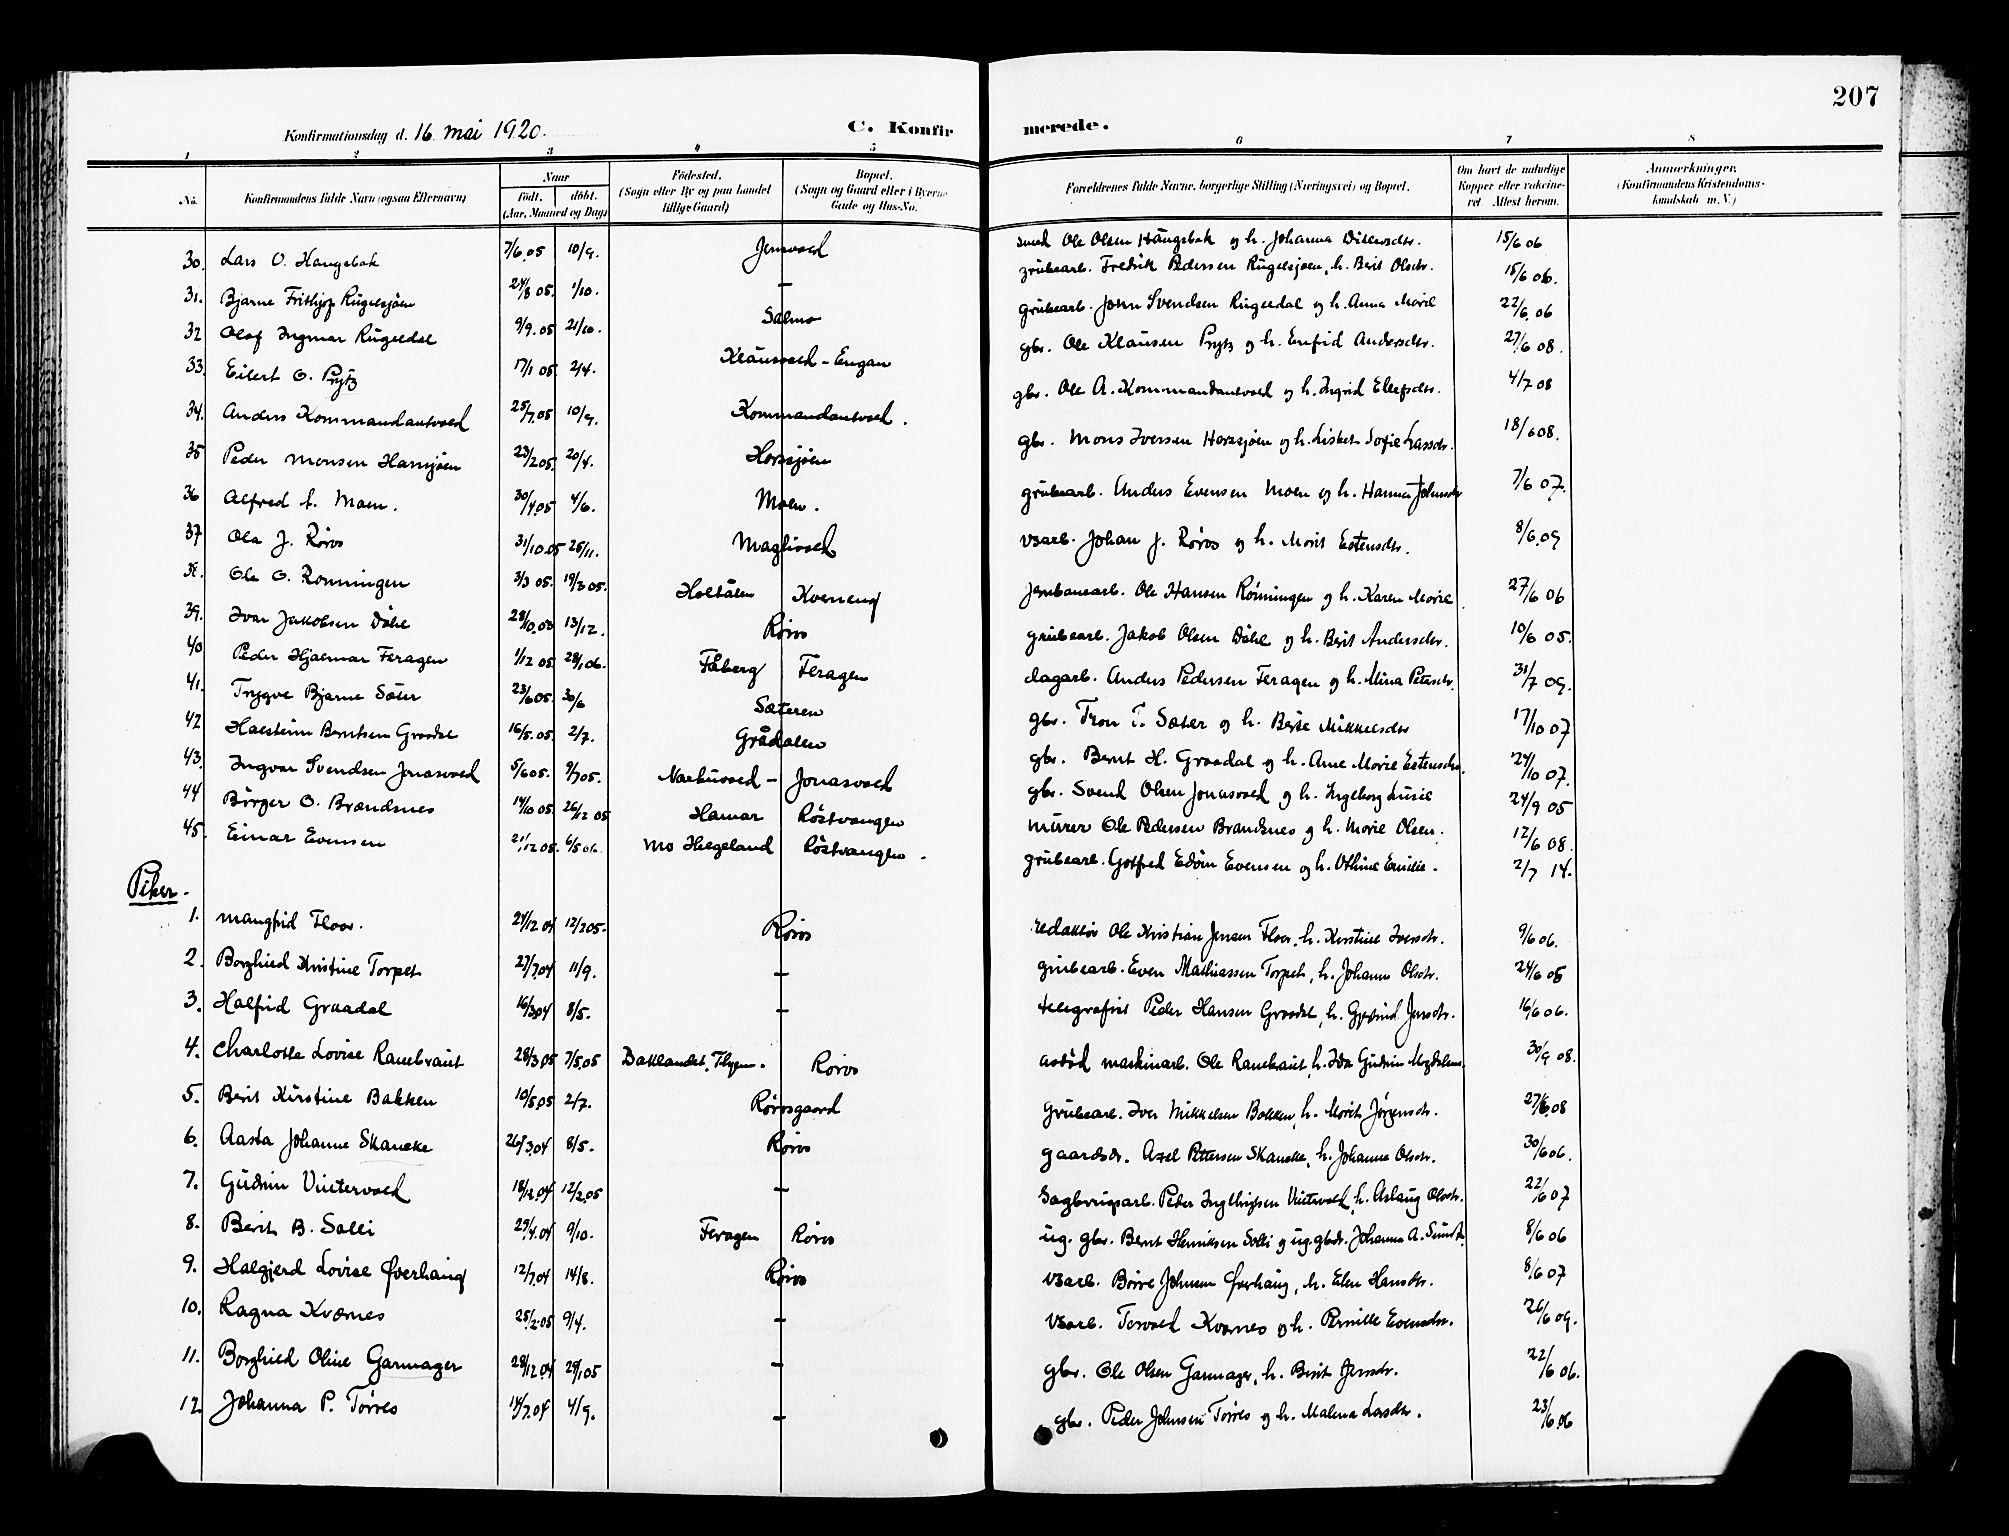 207
Konfirmationsdag d. 16. mai 1920.
C. Konfirmerede.
1 2 3 4 5 6 7 8
No.
Konfirmandens fulde Navn (ogsaa Efternavn)
Naar
født. døbt.
(Aar, Maaned og Dag)
Fødested.
(Sogn eller By og paa Landet
tillige Gaard)
Bopæl.
(Sogn og Gaard eller i Byerne
Gade og Hus-No.
Forældrenes fulde Navne, borgerlige Stilling (Næringsvei) og Bopæl.
Om havt de naturlige
Kopper eller vakcine-
ret Attest herom.
Anmerkninger.
(Konfirmandens Kristendoms-
kundskab m. V.)
30. Lars O. Haugsbak 7/6.05 10/9. Jensvold smed Ole Olsen Haugsbak og h. Johanna 15/6 06
31. Bjarne Frithjof Rugelsjøen 24/8 05. 1/10. — grubearb. Fredrik Pedersen Rugelsjøen, h. Berit Olsdtr. 15/6 06.
32 Olaf Ingmar Rugeldal 9/9.05 21/10. Galmo grubearb. John Svendsen Rugeldal og h. Anna Marie 22/6.06
33. Eilert O. Prytz 17/1 05. 2/4. Klausvold – Engan gbr. Ole Klausen Prytz og h. Enfrid Andersdtr. 27/6 08.
34. Anders Kommandantvold 25/7.05 10/9. Kommandantvold. gbr. Ole A. Kommandantvold og h. Ingrid Ellefsdtr. 4/7 08
35 Peder Monsen Harsjøen 23/2.05. 20/4. Harsjøen gbr. Mons Iversen Harsjøen og h. Lisbet Sofie Larsdtr. 18/6 08.
36 Alfred A. Moen. 30/4.05 4/6. Moen. grubearb. Anders Evensen Moen og h. Hanna Johnsdtr 7/6 07.
37 Ola J. Røros 31/10.05 25/11. vsarb. Johan J. Røros og h. Marit Estensdtr. 8/6.09
38. Ole O. Rønningen 3/3 05. 19/3 05. Holtålen Kverneng jernbanearb. Ole Hansen Rønningen og h. Karen Marie 27/6 06
39. Ivar Jakobsen Døhl 28/10.03 13/12. Røros grubearb. Jakob Olsen Døhl og h. Berit Andersdtr. 10/6 05.
40 Peder Hjalmar Feragen 1/12 05. 28/1 06. Fåberg Feragen dagarb. Anders Pedersen Feragen og h. Mina Petersdtr. 31/7 09.
41. Trygve Bjarne Sæter 23/6 05. 30/6 Sæteren gbr. Tron T. Sæter og h. Berit Mikkelsdtr 17/10 07
42 Halstein Berntsen Graadal 16/5.05. 2/7. Grådalen gbr. Bernt H. Graadal og h. Anne Marie Estensdtr. 24/10 07.
43. Ingvar Svendsen Jonasvold 5/6 05. 9/7 05. Narbuvold – Jonasvold gbr. Svend Olsen Jonasvold og h. Ingeborg Lusie 24/9 05
44 Børger O. Brændsnes 14/10 05. 26/12 05 Hamar Røstvangen murer Ole Pedersen Brændsnes og h. Marie Olsen. 12/6 08.
45. Einar Evensen 21/12 05. 6/5 06. Mo Helgeland Røstvangen. grubearb. Gotfred Edvin Evensen og h. Othine Emilie. 2/7 14.
Piker.
1. Mangfrid Floor. 24/12 04 12/2 05. Røros redaktør Ole Kristian Jensen Floor, h. Kirstine Iversdtr. 9/6 06.
2. Borghild Kristine Torpet 27/7.04 11/9. — grubearb. Even Mathiassen Torpet, h. Johanna Olsdtr. 24/6 05
3. Halfrid Graadal 16/3.04 8/5. — telegrafist Peder Hansen Graadal, h. Jensdtr. 16/6 06.
4. Charlotte Lovise Ranebraut 28/3.05 7/5.05 Baklandet, Thjem. Røros avdød maskinarb. Ole Ranebraut, h. Ida Gudrun Magdalena. 30/9 08.
5. Berit Kirstine Bakken 10/5.05 2/7. Rørosgaard grubearb. Iver Mikkelsen Bakken, h. Marit Jørgensdtr. 27/6.08
6. Aasta Johanne Skancke 26/3.04 8/5. Røros gaardbr. Axel Pettersen Skancke, h. Johanna Olsdtr. 30/6 06.
7. Gudrun Vintervold 18/12.04 12/2.05 — Sagbrugsarb. Peder Ingebrigtsen Vintervold, h. Aslaug Olsdtr. 22/6 07
8. Berit B. Solli 29/4.04 9/10. Feragen Røros ug. gbr. Bernt Henriksen Solli og ug. gbdr. Johanna A. Sundt. 8/6 06
9. Halgjerd Lovise Øverhaug 12/7.04 14/8. Røros vsarb. Børre Johnsen Øverhaug, h. Elen Hansdtr. 8/6 07
10. Ragna Kværnes 25/2.05 9/4. — vsarb. Torvald Kværnes og h. Pernille Evensdtr. 26/6 09.
11. Borghild Oline Garmager 28/12.04 29/1 05 — gbr. Ole Olsen Garmager, h. Berit Jensdtr. 22/6 06.
12 Johanna P. Torres 14/7.04 4/9. — gbr. Peder Johnsen Torres og h. Malena Larsdtr. 23/6.06